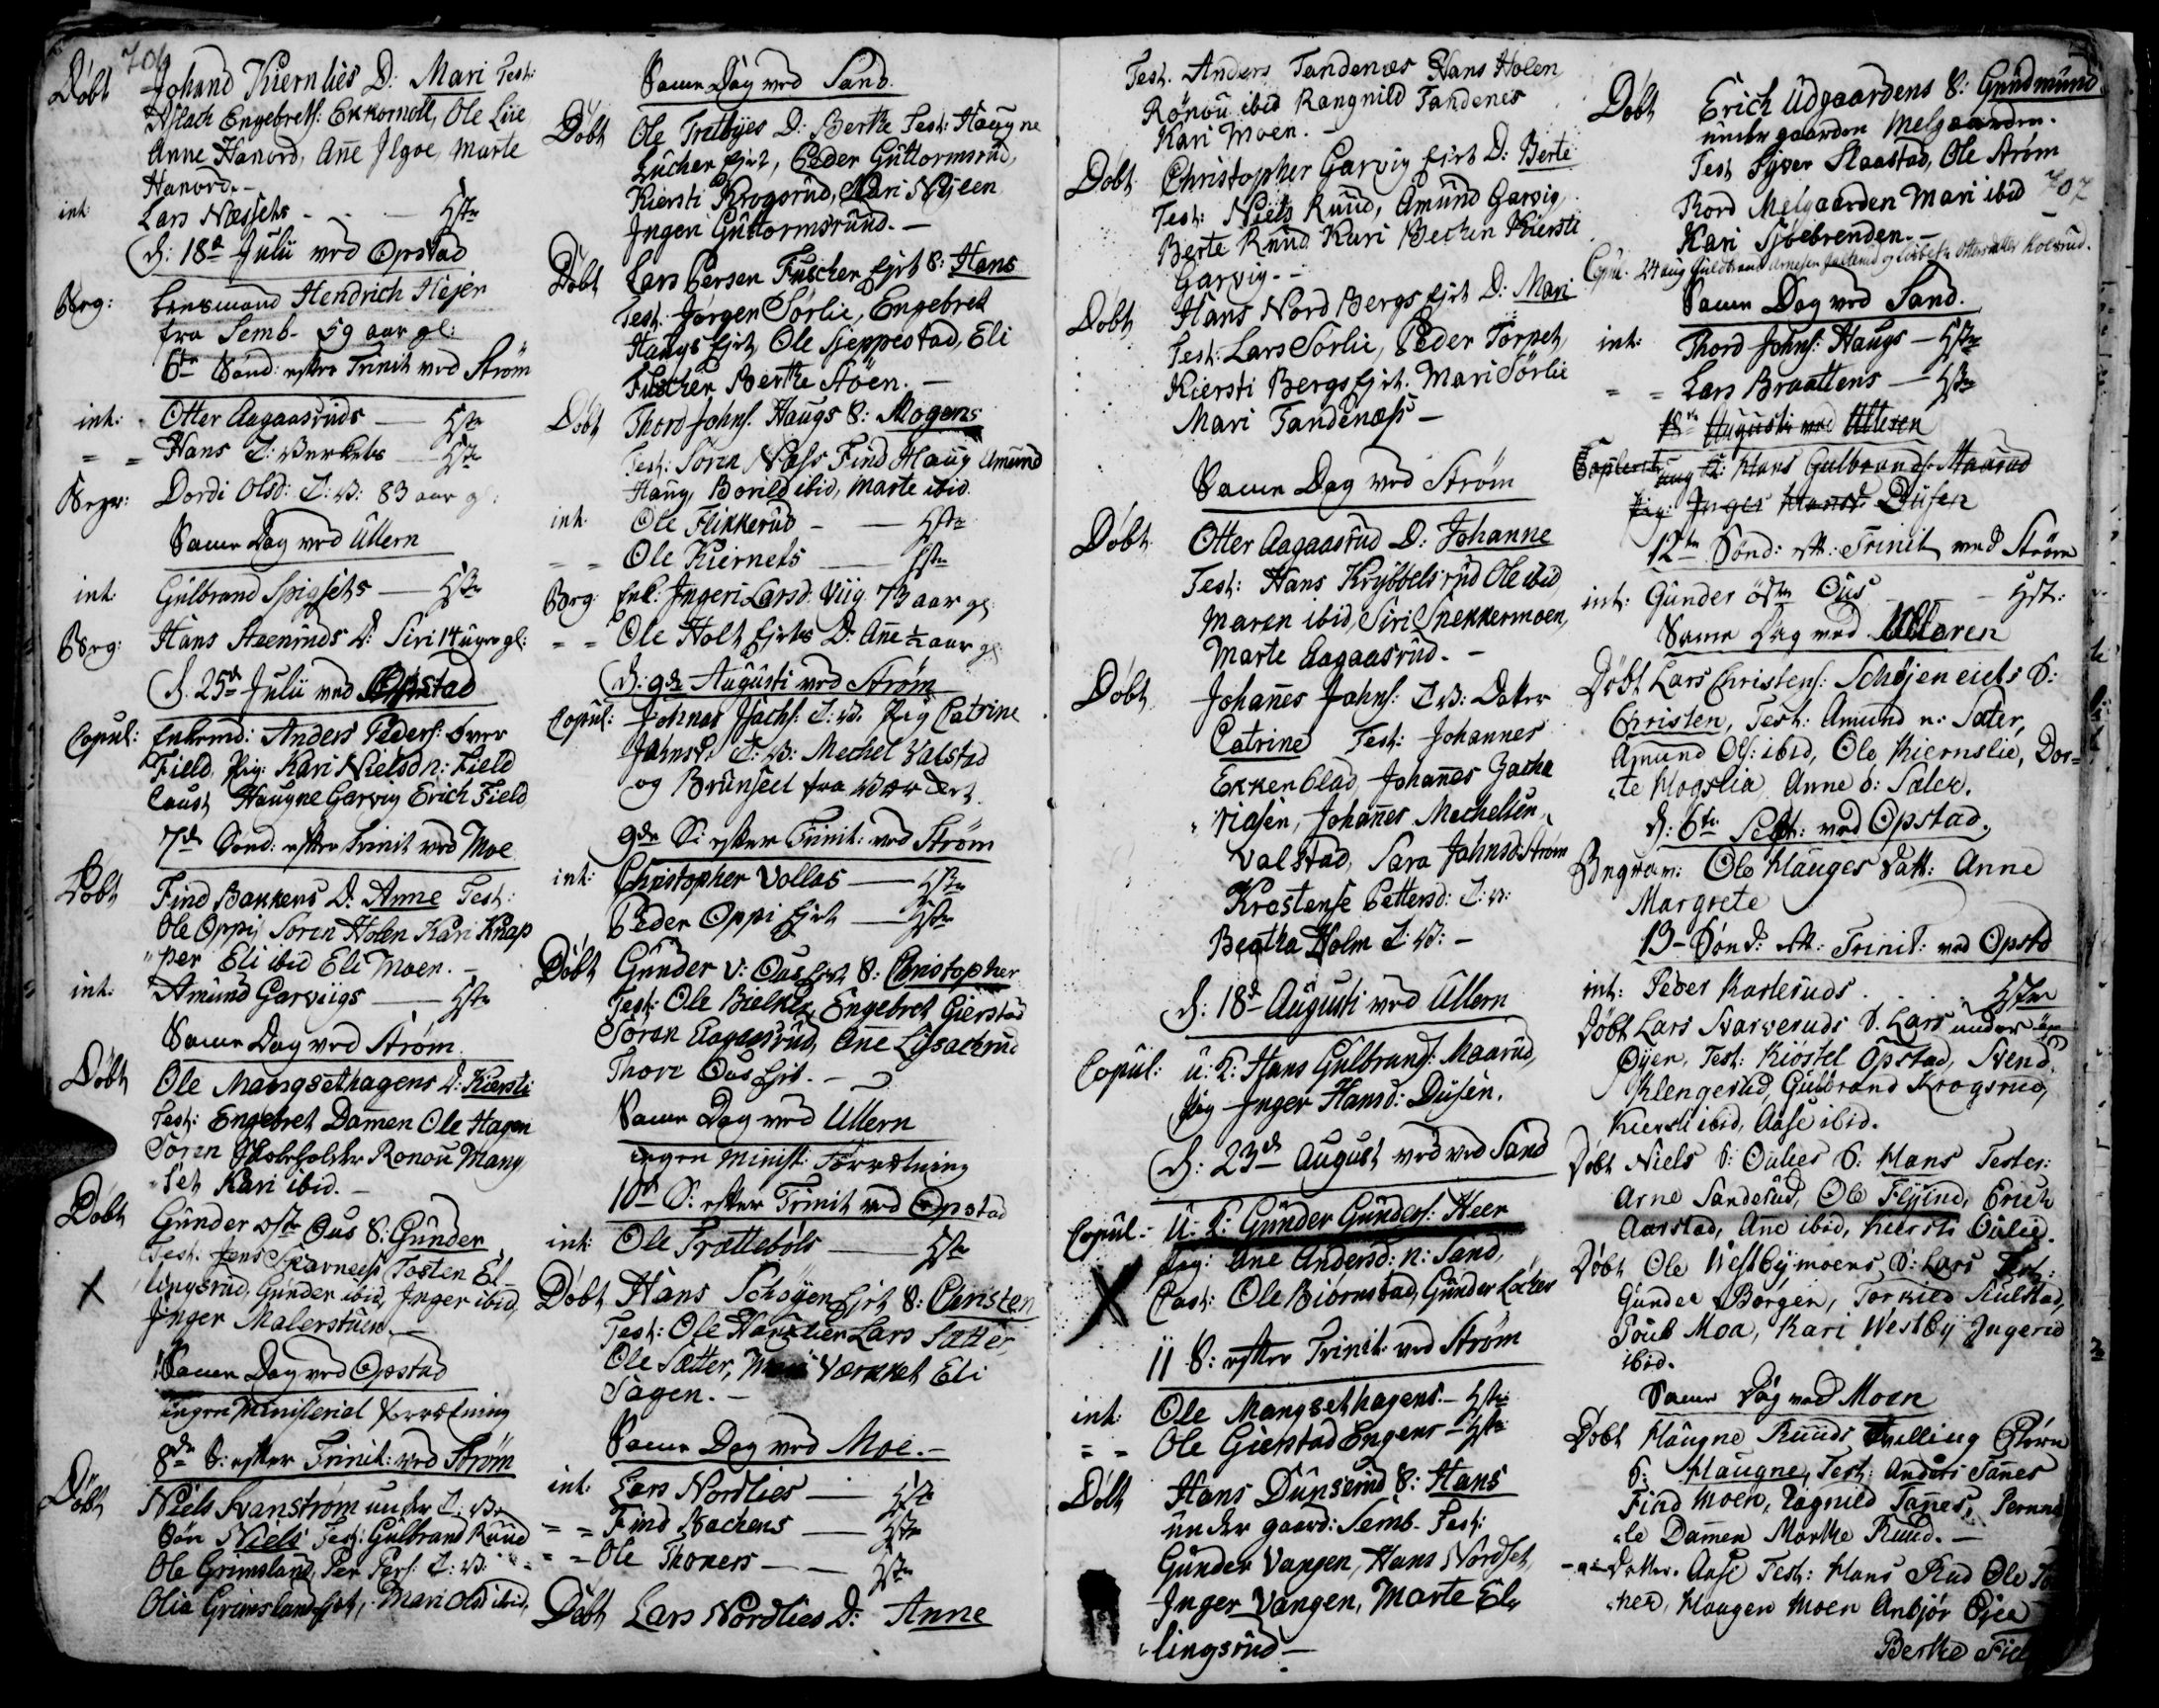 706
Døbt Johand Kiernlies D: Mari Test:
Aslach Engebrets: Ekkornoll, Ole Lüe
Anne Hanord, Añe Ilgoe, Marte
Hanord.-
int: Lars Næssets - - - Hstr
D: 18de Julii ved Opstad
Begr: Lensmand Hendrich Hejer
fra Semb - 59 aar gl:
6te Sønd: efter Trinit ved Strøm
int: Otter Aagaasruds — Hstr
= = Hans J:Verkets — Hstr
Begr: Dordi Olsd: J:V: 83 aar g:
Same Dag ved Ullern
int: Gulbrand Spigsets — Hstr
Begr: Hans Steeninds D: Siri 14 uger gl:
D. 25de Julii ved Opstad
Copul: Enkemd: Anders Peders: Over
Field, Pig: Kari Nielsd n: Field
Caust Haugne Garvig Erich Field
7de Sønd: efter Trinit ved Moe
Døbt Find Bakkens D: Anne Test:
Ole Oppi, Soren Holen Kari Knap
"per Eli ibid Eli Moen. -
int: Amund Garviigs — Hstr
Same Dag ved Strøm
Døbt Ole Mangsethagens D: Kiersti
Test: Engebret Damen Ole Hagen
Soren Ronou Mang
"set Kari ibid. -
Døbt Gunder østr Ous S: Gunder
Test: Jens Skarness Tosten El-
X lingsrud, Gunder ibid, Inger ibid,
Inger Malerstuen —
Same Dag ved Opstad
ingen Ministerial Forretning
8de S: efter Trinit: ved Strøm
Døbt Niels Svanstrøm under J: V:
Søn Niels Test: Gulbrand Ruud
Ole Grimsland, Per Pers: J: V:
Olia Grimsland , Mari Olsd ibid,
Same Dag ved Sand
Døbt Ole Tretbyes D: Berthe Test: Haugne
Lucher Ejet, Peder Guttormsrud,
Kiersti Krogsrud, Mari Nyeen
Ingeri Guttormsruud. —
Døbt Lars Persen Fuscher Ejet S: Hans
Test: Jørgen Sørlie, Engebret
Haugs Ejet, Ole Sjeppestad, Eli
Fuscher Berthe Støen. —
Døbt Thord Johns: Haugs S: Mogens
Test: Soren Næss Find Haug Amund
Haug, Borild ibid, Marte ibid.
int: Ole Flikkerud - — Hstr
= = Ole Kiernets — Hstr
Begr: Enk: Ingeri Larsd: Viig 73 aar gl:
= = Ole Holt Ejets D: Añe ½ aar gl:
D: 9de Augusti ved Strøm
Copul: Johnas Isachs: J:V: Pig Catrine
Jahnsdr J: V: Mechel Valstad
og Brunseel fra Værket
9de S: efter Trinit: ved Strøm
int: Christopher Vollas — Hstr
Peder Oppi Ejet — Hstr
Døbt Gunder v: Ous Ejet S: Christopher
Test: Ole Bielke, Engebret Gierstad
Søren Aagaasrud, Añe Lysachrud
Thore Ous Ejet. —
Same Dag ved Ullern
ingen Minist: Forretning
10de S: efter Trinit ved Opstad
int: Ole Trættebøls — Hstr
Døbt Hans Schøyen Ejet S: Christen
Test: Ole Lars Sætter,
Ole Sætter, Værket Eli
Sagen. —
Same Dag ved Moe. —
int: Lars Nordlies — Hstr
= = Find Bachens — Hstr
= = Ole Thoners — Hstr
Døbt Lars Nordlies D: Anne
Test. Anders Tandenæs Hans Holen,
Rönou ibid Rangnild Tandenes
Kari Moen. -
Døbt Christopher Garvig Ejet D: Berte
Test: Niels Ruud, Amund Garvig,
Berte Ruud Kari Bechen Kiersti
Garvig. -
Døbt Hans Nord Bergs Ejet D: Mari
Test: Lars Sørlie, Peder Torpet,
Kiersti Bergs Ejet. Mari Sørlie
Mari Tandenæss —
Same Dag ved Strøm
Døbt Otter Aagaasrud D: Johanne
Test: Hans Krybbelsrud Ole ibid,
Maren ibid, Siri Snekkermoen,
Marte Aagaasrud. -
Døbt Johañes Jahns: J V: Dater
Catrine Test: Johannes
Ekkenblad, Johañes Zacha
"riasen, Johañes Mechelsen,
Valstad, Sara Jahnsd: Strøm
Krestense Pettersd: J: V:
Beatha Holm J: V: -
D: 18de Augusti ved Ullern
Copul: u: K: Hans Gulbrands: Maarud,
Pig Inger Hansd: Dusen.
D: 23de August ved ved Sand
Copul: U: K: Gunder Gunders: Heer
Pig: Añe Andersd: n: Sand,
X Cast: Ole Biørnstad, Gunder Locher
11 S: efter Trinit: ved Strøm
int: Ole Mangsethagens. - Hstr
= = Ole Gierstad Engens - Hstr
Døbt Hans Dunserud S: Hans
under gaard: Semb - Test:
Gunder Vangen, Hans Nordset,
Inger Vangen, Marte El-
"lingsrud —
Døbt Erich Udgaardens S: Gundmund
under gaarden Melgaarden.
Test Syver Staastad, Ole Strøm
707
Thord Melgaarden Mari ibid
Kari Sjoebrenden. -
Copul. 24 aug Guldbrand Arnesen og Lisbeth Ottersdatter Kolsrud.
Same Dag ved Sand.
int: Thord Johns: Haugs — Hstr
= = Lars Braattens — Hstr
18de Augusti ved Ulleren
Copulert ung K: Hans Gulbrands: Maarud
Pig: Inger Hansd: Dusen
12te Sønd: eft: Trinit ved Strøm
int: Gunder østr Ous - - - Hstr:
Same Dag ved Ulleren
Døbt Lars Christens: Schøjen eiets S:
Christen, Test: Amund n: Sæter,
Amund Ols: ibid, Ole Kiernslie, Dor=
"te Mogslia Anne ö: Sæter.
D: 6te Sept: ved Opstad.
Begraven: Ole Hauges Datt: Anne
Margrete
13 - Sønd: eft: Trinit: ved Opstd
int: Peder Karlsruds . . . Hstr
Døbt Lars Svarveruds S. Lars under
Øyen, Test: Kiøstel Opstad, Svend
Klengerud, Gulbrand Krogsrud,
Kiersti ibid, Aase ibid.
Døbt Niels S: Oulies S: Hans Testes:
Arne Sanderud, Ole Flyind, Erich
Aarstad, Añe ibid, Kiersti Oulie.
Døbt Ole Westbymoens S: Lars Test:
Gunder Børgen, Torkild Kulstad,
Poul Moa, Kari Westby Ingerid
ibid.
Same Dag ved Moen
Døbt Haugne Ruuds Tvilling Børn
S: Haugne, Test: Anders Tañes
Find Moen, Ragnild Tañes, Pernni
"le Damen Marthe Ruud. —
Datter. Aase Test: Hans Rud Ole
Haugen Moen Anbjør
Berthe